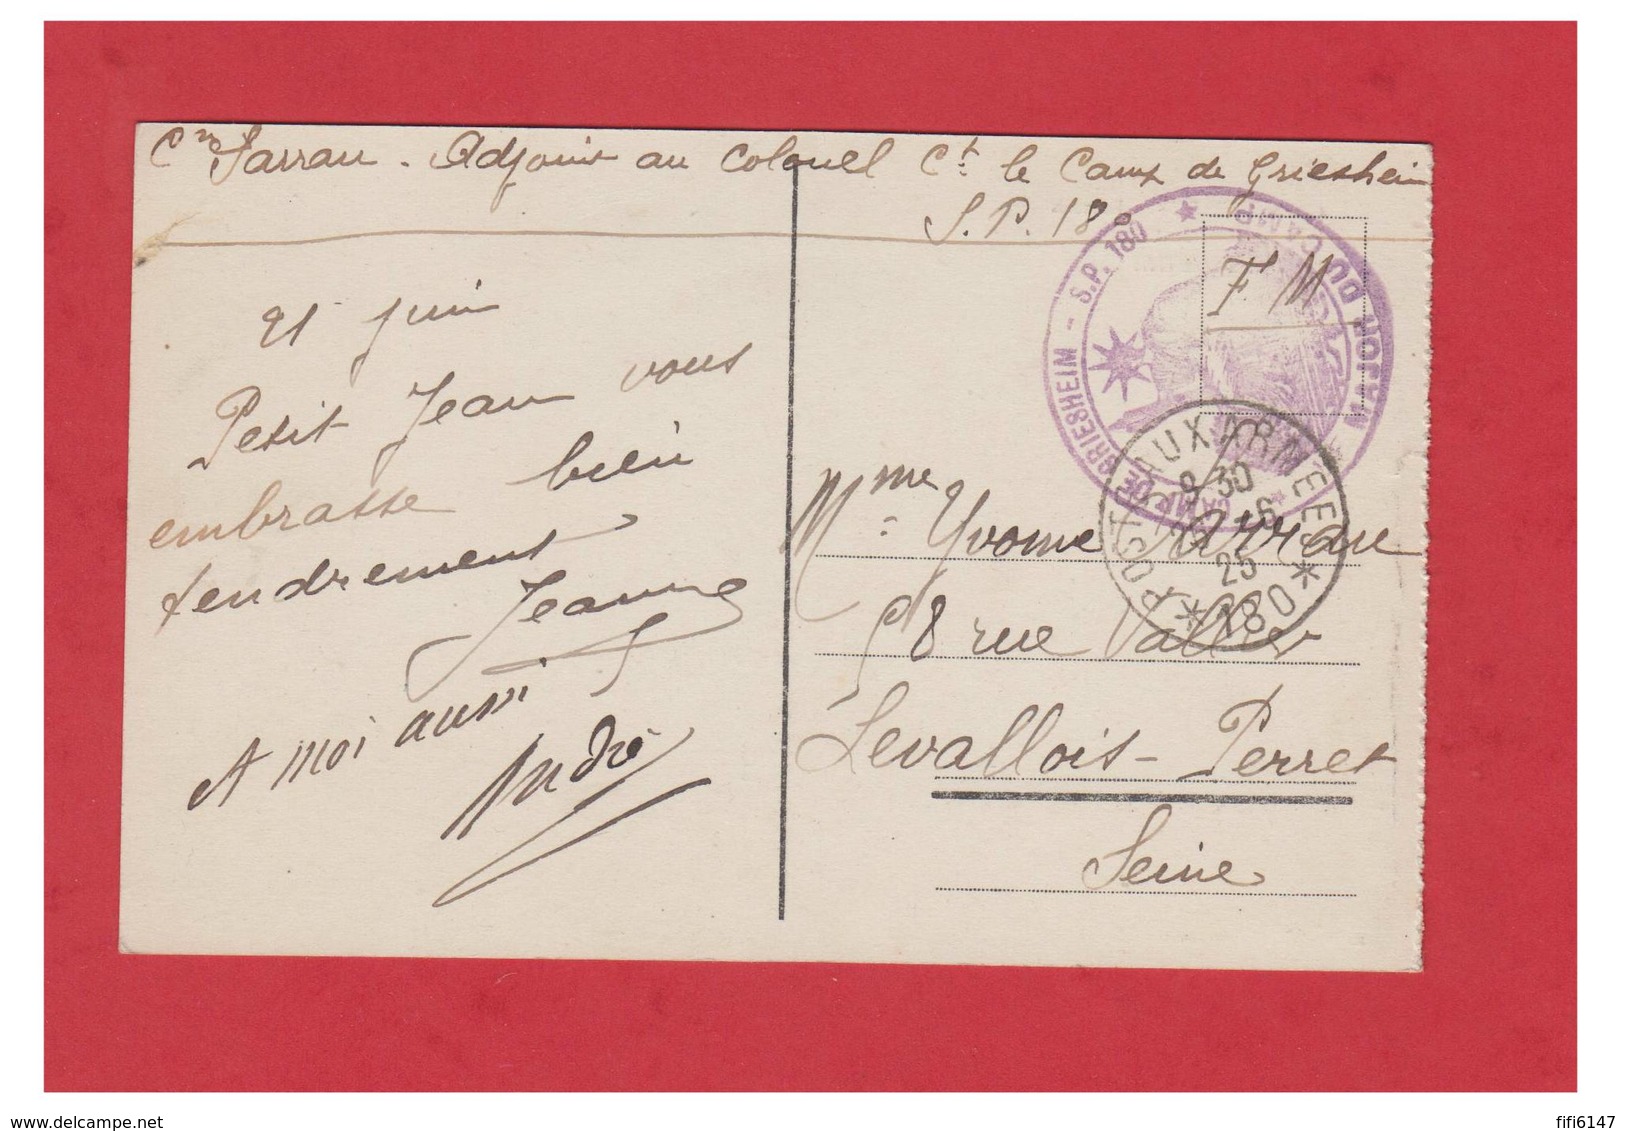 Cne Sarrau. Adjoint au Colonel Ct le Camp de Griesheim
S.P. 180
F M
MAJOR DU CAMP
CAMP DE GRIESHEIM - S.P. 180
POSTE AUX ARMEES
9 30
6
25
* 180 *
21 juin
Petit Jean vous
embrasse bien
tendrement
Jeanne
A moi aussi
André
Mme Yvonne Sarrau
58 rue Vallier
Levallois-Perret
Seine
delcampe.net
fifi6147